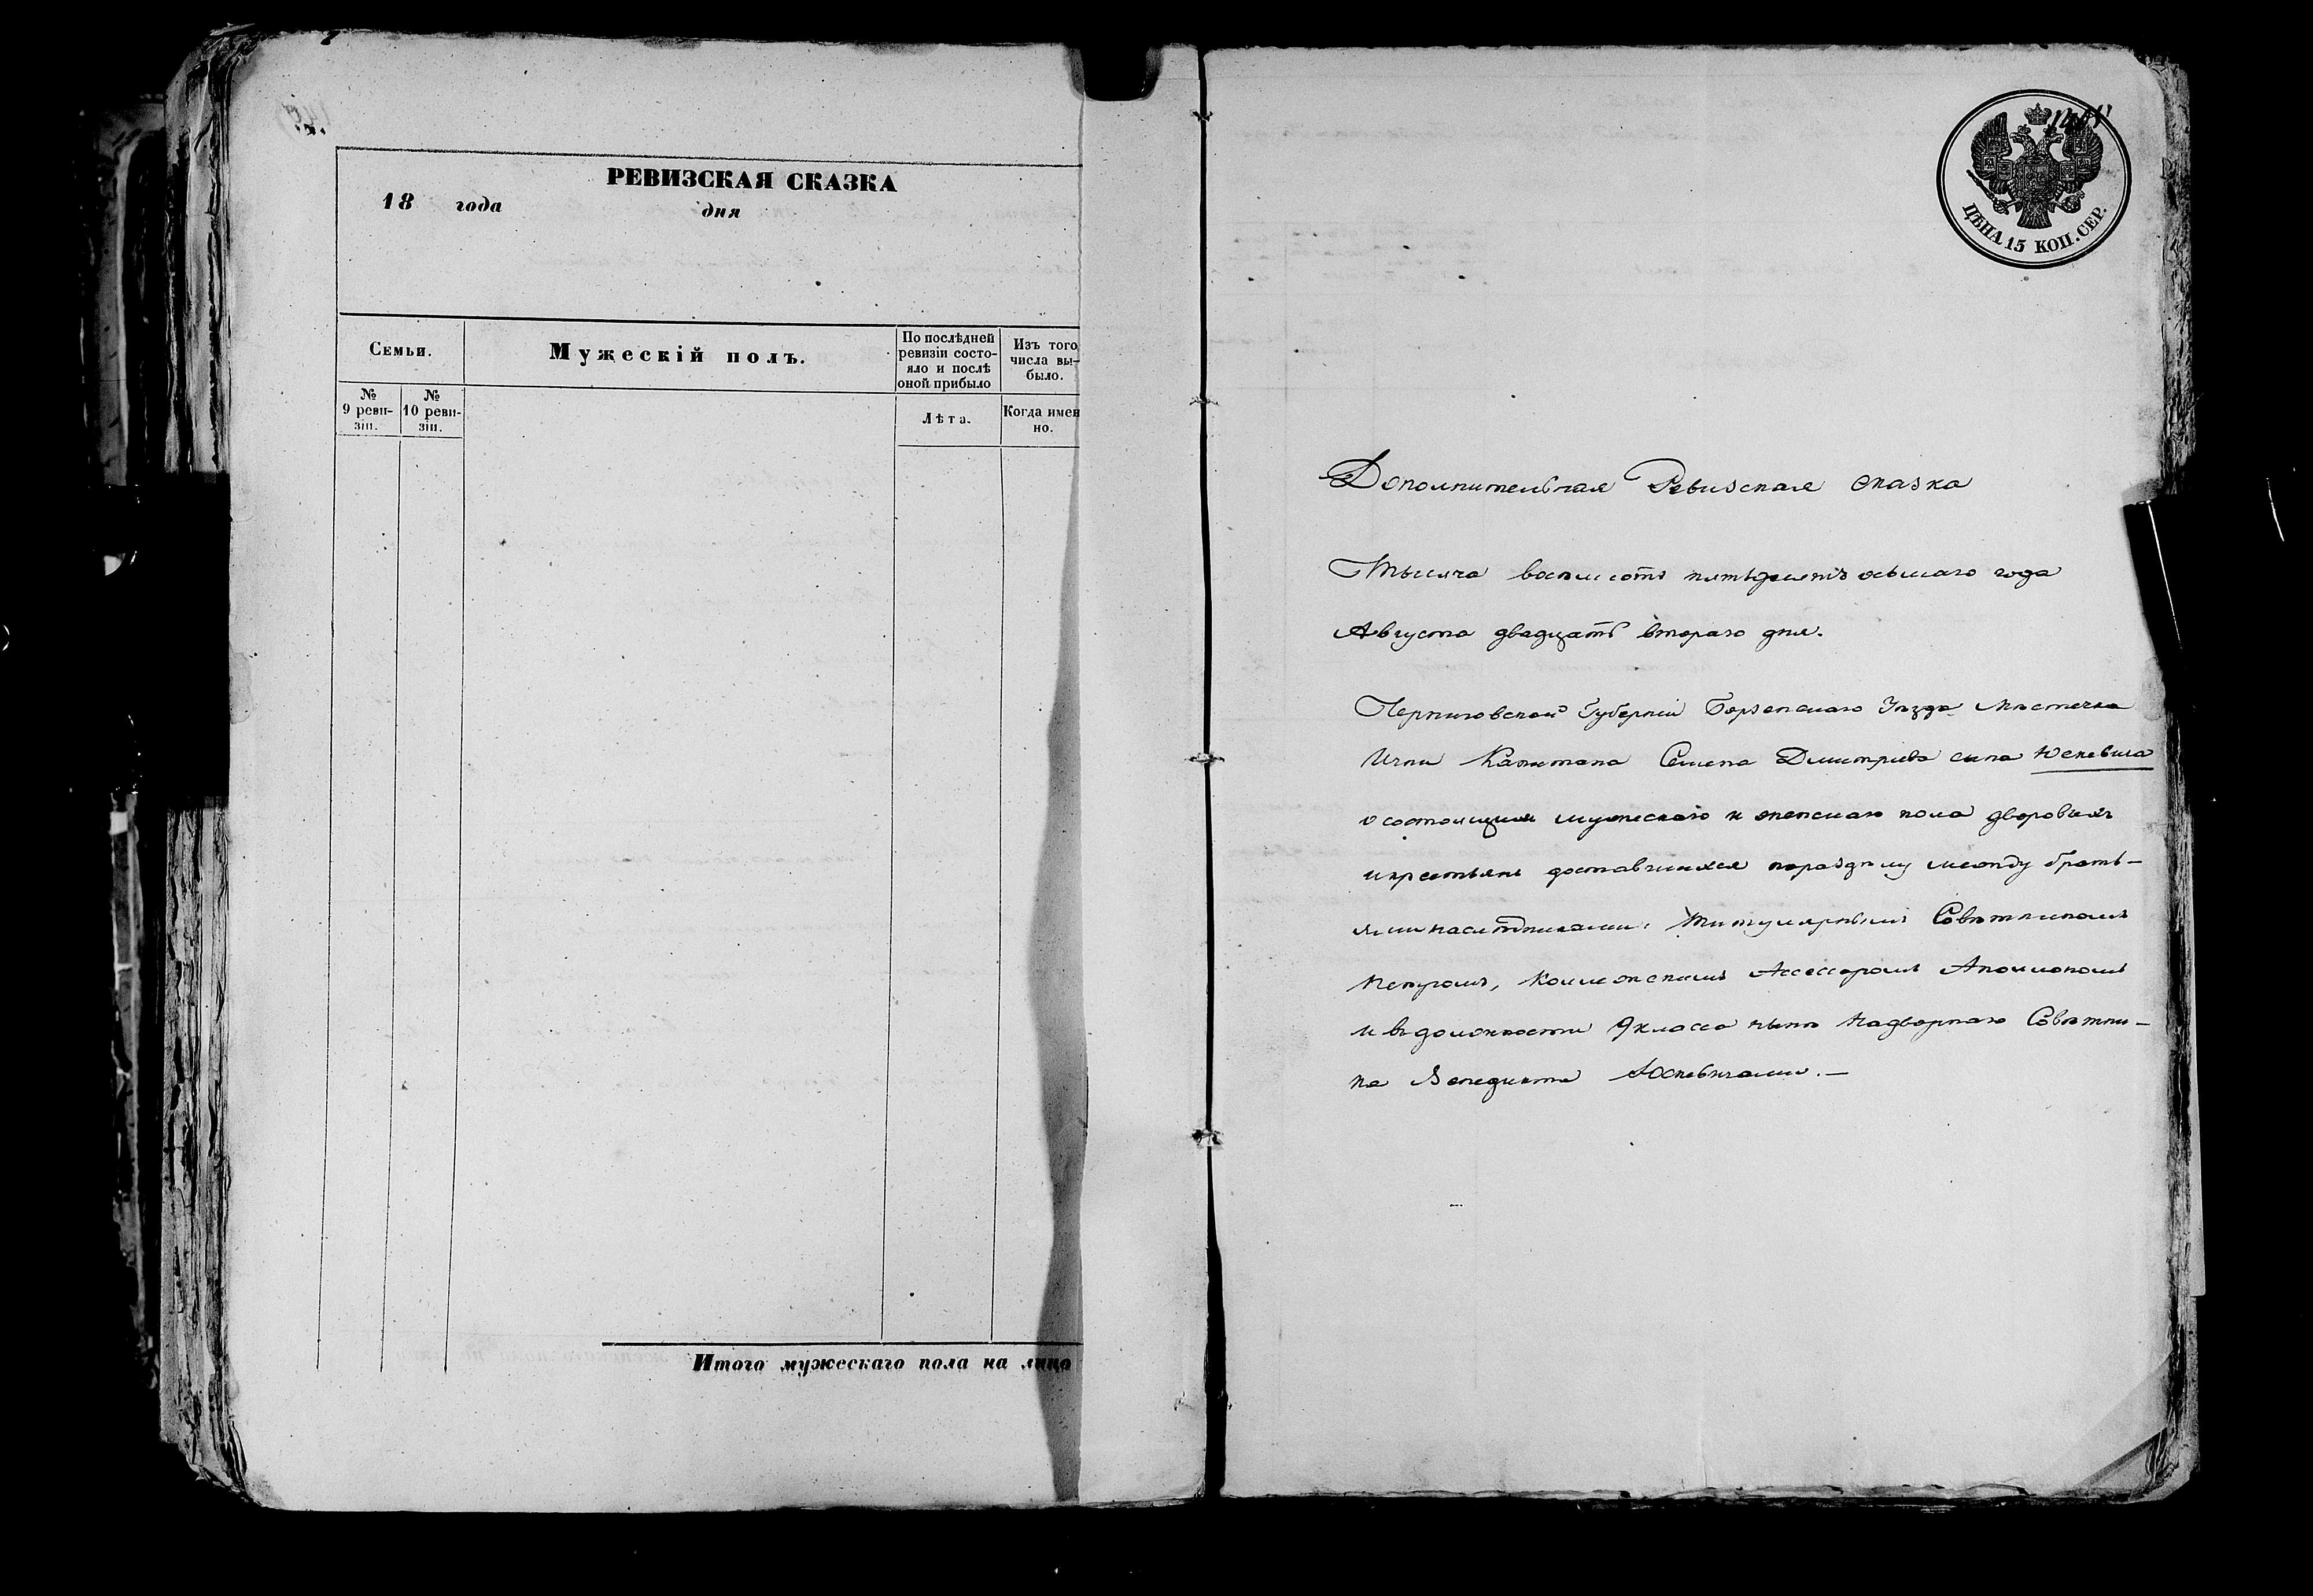 РЕВИЗСКАЯ СКАЗКА
18 года дня
Семьи.
Мужескій полъ.
По послѣдней
ревизіи состо-
яло и послѣ
оной прибыло
Изъ того
числа вы-
было.
№
9 реви-
зіи.
№
10 реви-
зіи.
Лѣта.
Когда имен
но.
Итого мужескаго пола на лицо
ЦѢНА 15 КОП. СЕР.
Дополнительная Ревизская сказка
Тысяча восемсотъ пятьдесятъ осьмаго года
Августа двадцать втораго дня.
Черниговской Губерніи Борзенскаго Уѣзда Мѣстечка
Ични Капитана Семена Дмитріева сына Юскевича
о состоящихъ мужескаго и женскаго пола дворовыхъ
икрестьянъ доставшихся пораздѣлу между брать-
ями наслѣдниками: Титулярнымъ Совѣтникомъ
Петромъ, Коллежскимъ Ассессоромъ Аполлономъ
и въдолжности 9 класса нынѣ Надворнаго Совѣтни-
ка Венедикта Юскевичами.—